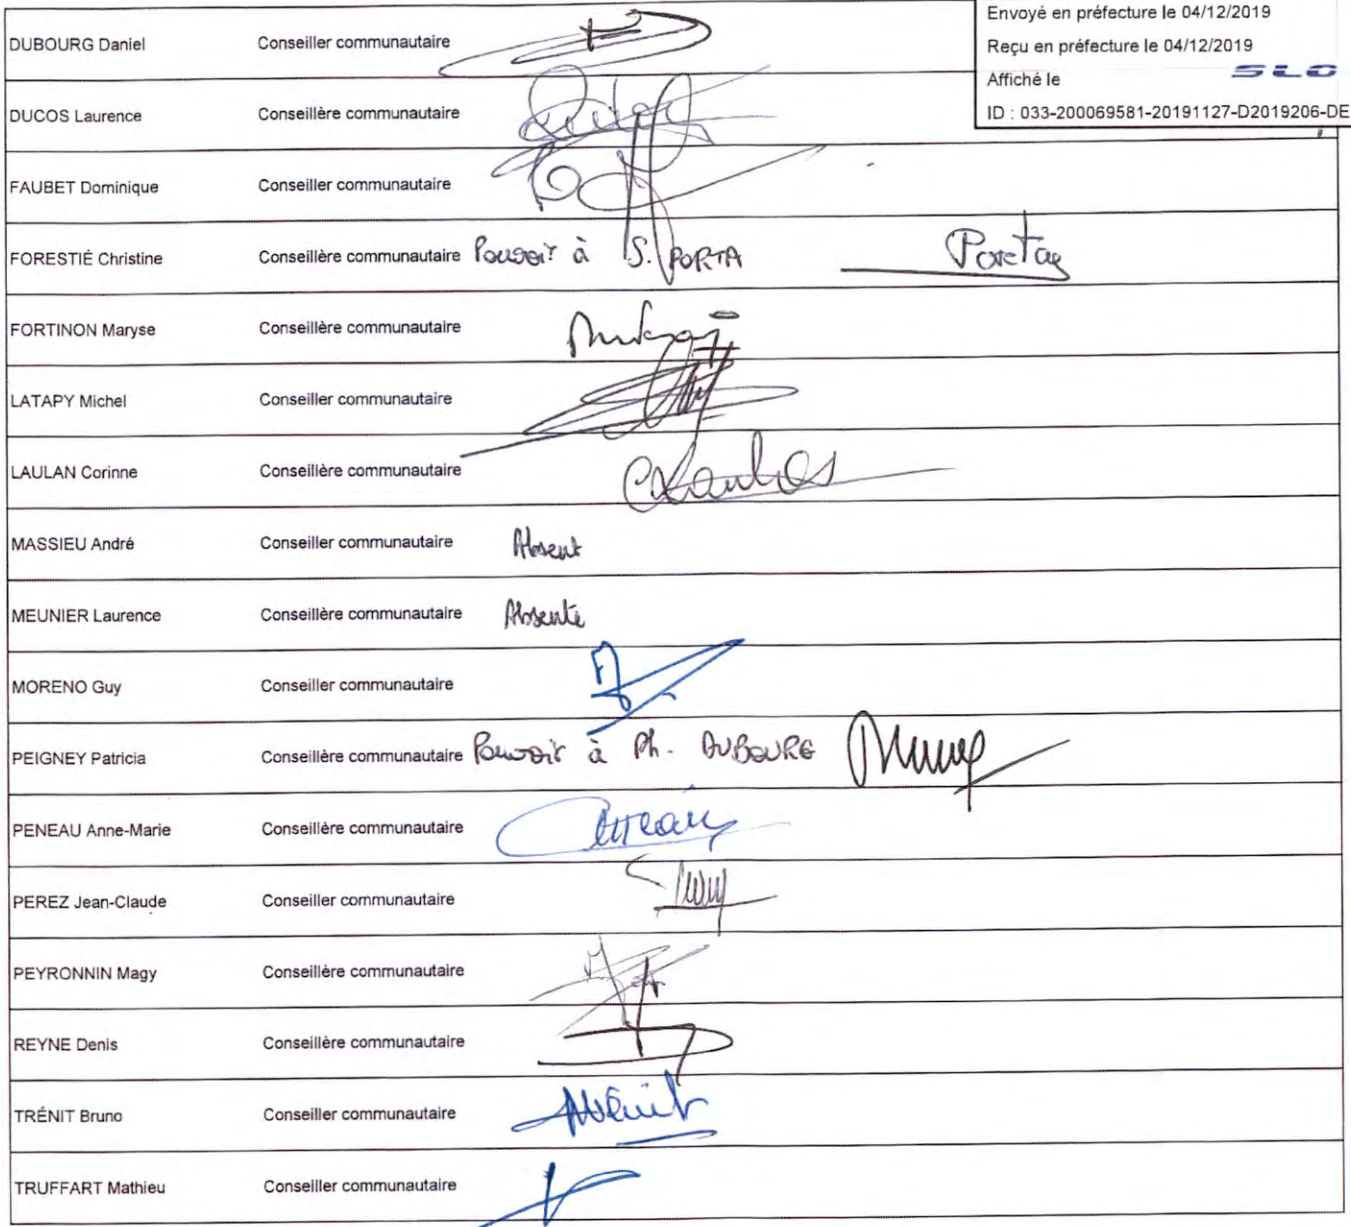 Envoyé en préfecture le 04/12/2019
Reçu en préfecture le 04/12/2019
Affiché le SLO
ID : 033-200069581-20191127-D2019206-DE
DUBOURG Daniel Conseiller communautaire
DUCOS Laurence Conseillère communautaire
FAUBET Dominique Conseiller communautaire
FORESTIÉ Christine Conseillère communautaire Pouvoir à S. PORTA Porta
FORTINON Maryse Conseillère communautaire
LATAPY Michel Conseiller communautaire
LAULAN Corinne Conseillère communautaire
MASSIEU André Conseiller communautaire Absent
MEUNIER Laurence Conseillère communautaire Absente
MORENO Guy Conseiller communautaire
PEIGNEY Patricia Conseillère communautaire Pouvoir à Ph. DUBOURG
PENEAU Anne-Marie Conseillère communautaire
PEREZ Jean-Claude Conseiller communautaire
PEYRONNIN Magy Conseillère communautaire
REYNE Denis Conseillère communautaire
TRÉNIT Bruno Conseiller communautaire
TRUFFART Mathieu Conseiller communautaire